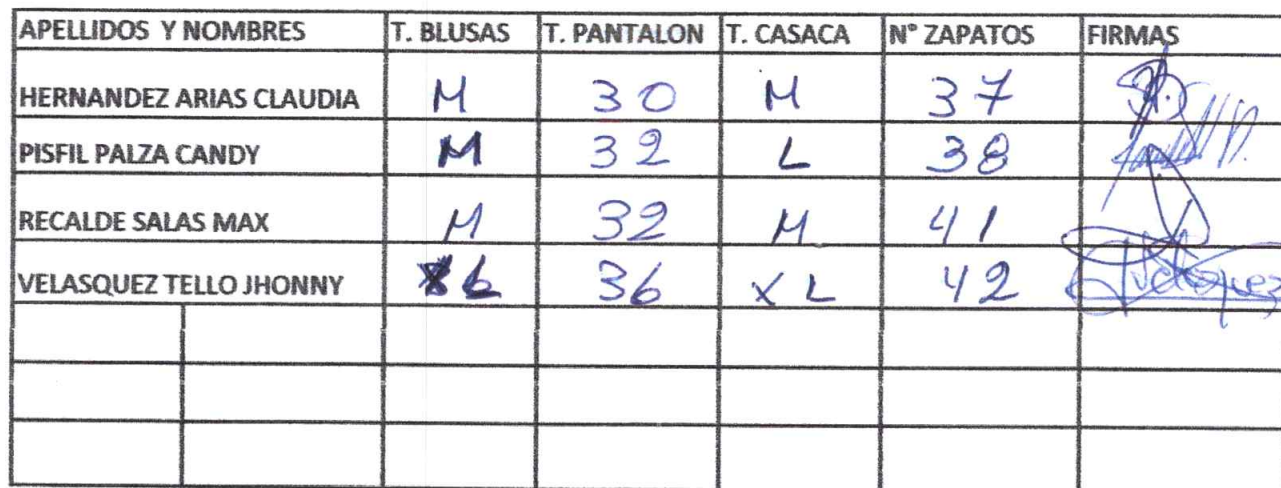 APELLIDOS Y NOMBRES T. BLUSAS T. PANTALON T. CASACA N° ZAPATOS FIRMAS
HERNANDEZ ARIAS CLAUDIA M 30 M 37
PISFIL PALZA CANDY M 32 L 38
RECALDE SALAS MAX M 32 M 41
VELASQUEZ TELLO JHONNY 36 XL 42